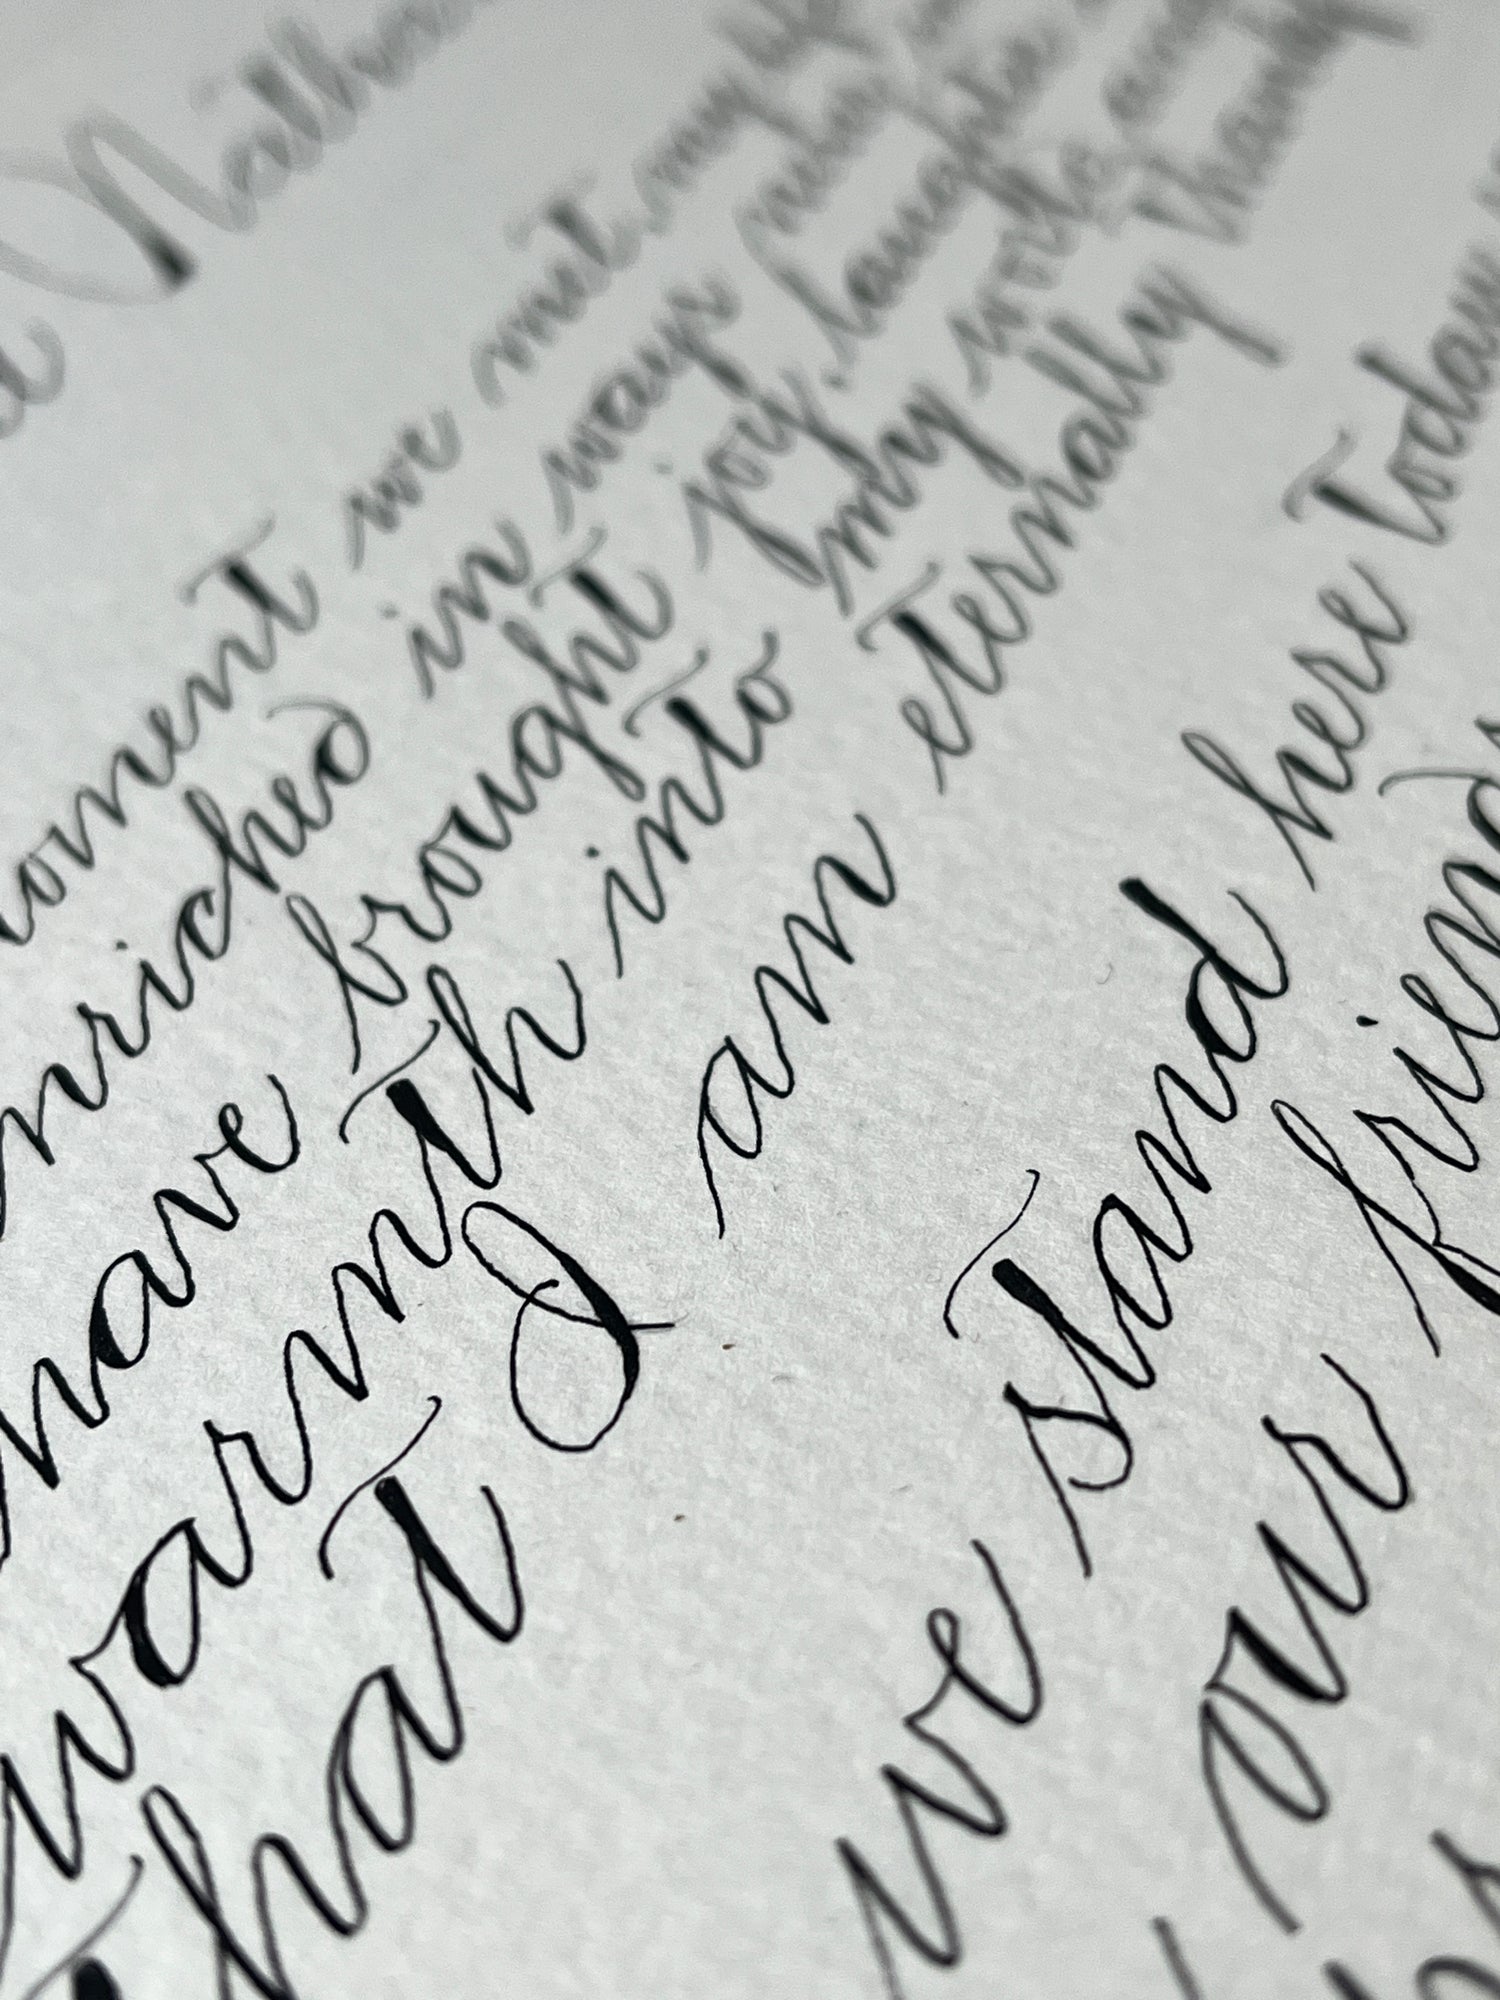 we met, my life
enriched in ways
have brought joy, laughter
warmth into my world, and
that I am eternally thankful
we stand here today
our friends